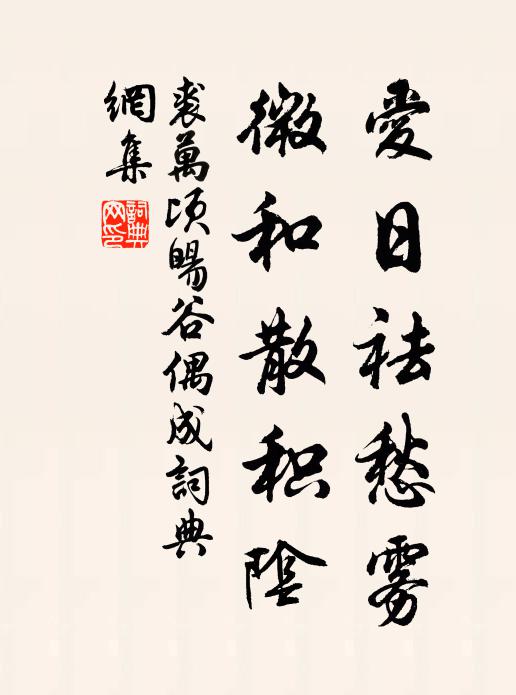 愛日祛愁雾
微和散积陰
裘萬顷暘谷偶成詞典
網集
詞典网印